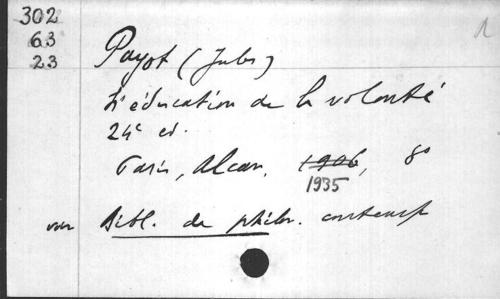 302
63
23
1
Payot (Jules)
L'éducation de la volonté
24e ed.
Paris, Alcan, 1906, 8o
1935
voir Bibl. de philos. contemp